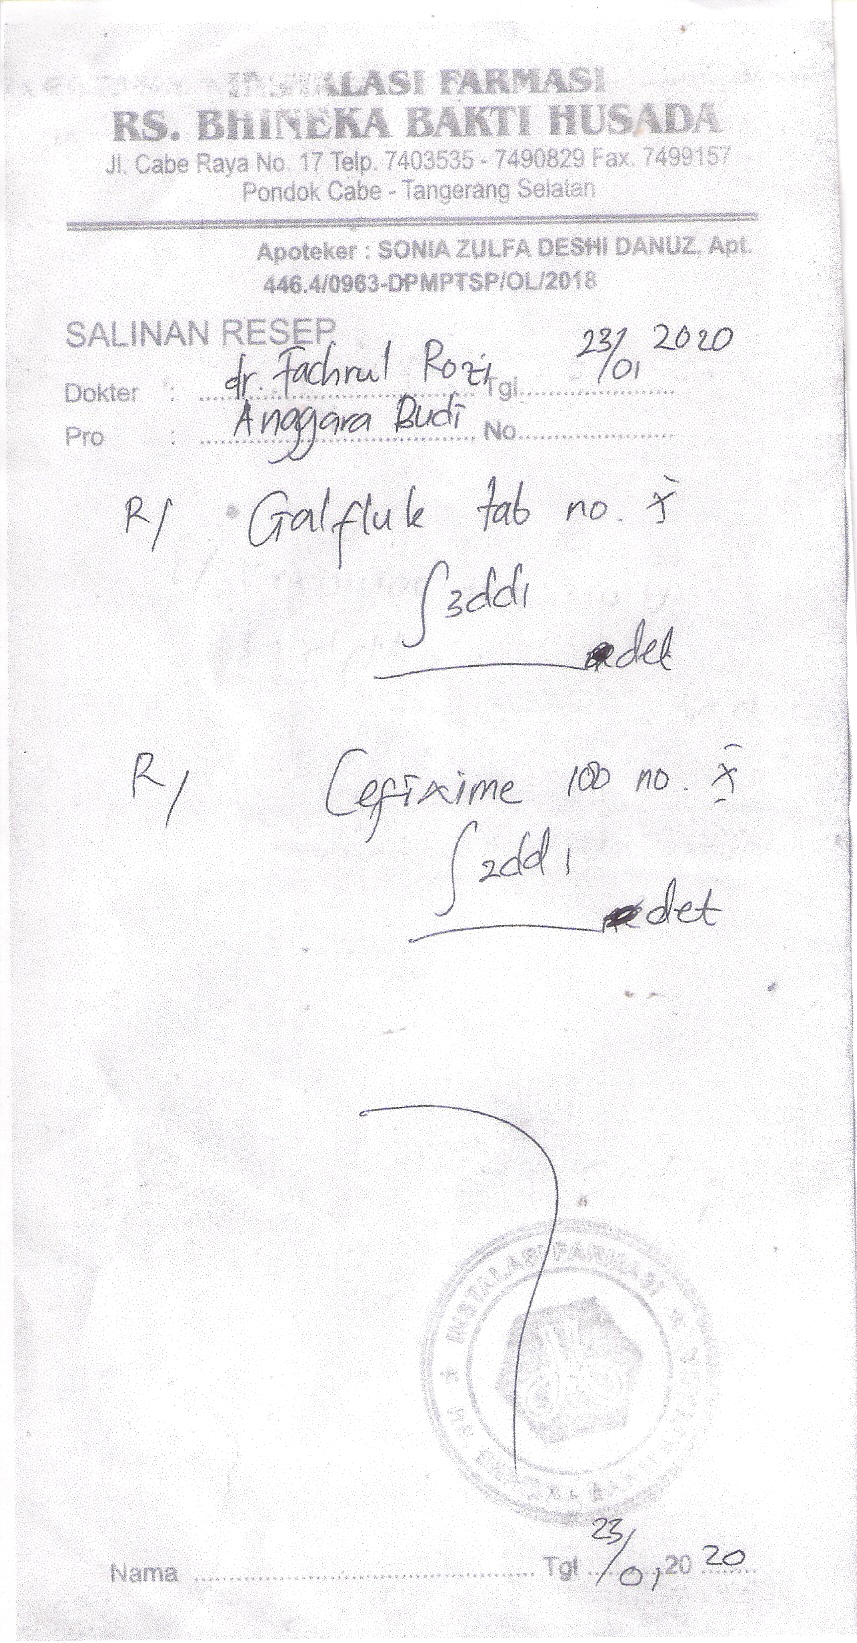 INSTALASI FARMASI
RS. BHINEKA BAKTI HUSADA
Jl. Cabe Raya No. 17 Telp. 7403535 - 7490829 Fax. 7499157
Pondok Cabe - Tangerang Selatan
Apoteker : SONIA ZULFA DESHI DANUZ, Apt.
446.4/0963-DPMPTSP/OL/2018
SALINAN RESEP
Dokter : dr. Fachrul Rozi Tgl. 23/01 2020
Pro : Anggara Budi No.
R/ Galfluk tab no. X
∫ 3dd1
det
R/ Cefixime 100 no. X
∫ 2dd1
det
INSTALASI FARMASI
Nama Tgl 23/01 20 20